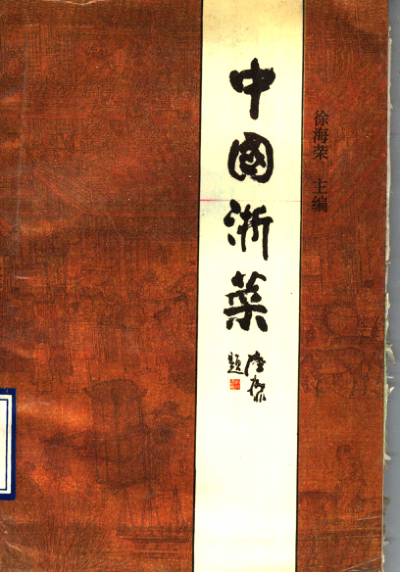 中國浙菜
徐海荣 主编
题